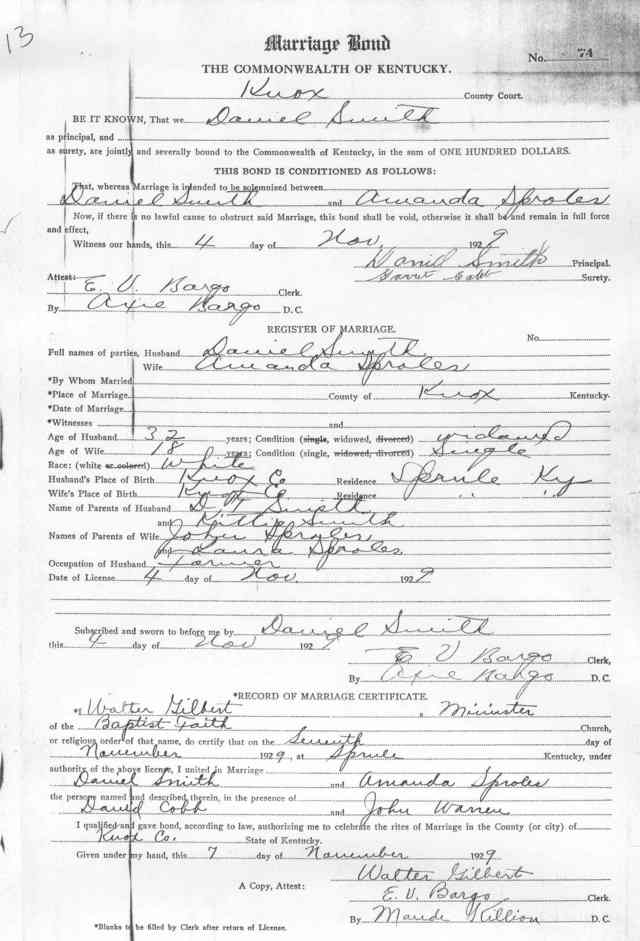 13
Marriage Bond
No. 74
THE COMMONWEALTH OF KENTUCKY.
Knox County Court.
BE IT KNOWN, That we Daniel Smith
as principal, and
as surety, are jointly and severally bound to the Commonwealth of Kentucky, in the sum of ONE HUNDRED DOLLARS.
THIS BOND IS CONDITIONED AS FOLLOWS:
That, whereas Marriage is intended to be solemnized between
Daniel Smith and Amanda Sproles
Now, if there is no lawful cause to obstruct said Marriage, this bond shall be void, otherwise it shall be and remain in full force
and effect,
Witness our hands, this 4 day of Nov. 1929
Daniel Smith Principal.
Surety.
Attest:
E. V. Bargo Clerk.
By Axie Bargo D. C.
REGISTER OF MARRIAGE.
No.
Full names of parties, Husband Daniel Smith
Wife Amanda Sproles
*By Whom Married
*Place of Marriage County of Knox Kentucky.
*Date of Marriage
*Witnesses and
Age of Husband 32 years; Condition (single, widowed, divorced) widowed
Age of Wife 18 years; Condition (single, widowed, divorced) Single
Race: (white or colored) White
Husband's Place of Birth Knox Co Residence Sprule Ky
Wife's Place of Birth Knox Co Residence " "
Name of Parents of Husband D. Smith
and Kittie Smith
Names of Parents of Wife John Sproles
and Laura Sproles
Occupation of Husband Farmer
Date of License 4 day of Nov. 1929
Subscribed and sworn to before me by Daniel Smith
this 4 day of Nov 1929
E V Bargo Clerk,
By Axie Bargo D. C.
*RECORD OF MARRIAGE CERTIFICATE.
*I Walter Gilbert, a Minister
of the Baptist Faith Church,
or religious order of that name, do certify that on the Seventh day of
November 1929, at Sprule Kentucky, under
authority of the above license, I united in Marriage
Daniel Smith and Amanda Sproles
the persons named and described therein, in the presence of
David Cobb and John Warren
I qualified and gave bond, according to law, authorizing me to celebrate the rites of Marriage in the County (or city) of
Knox Co. State of Kentucky.
Given under my hand, this 7 day of November 1929
Walter Gilbert
A Copy, Attest:
E. V. Bargo Clerk.
By Maude Killion D. C.
*Blanks to be filled by Clerk after return of License.